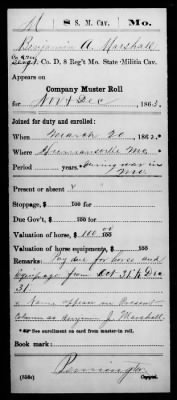 M | 8 S. M. Cav. | Mo.
Benjamin A. Marshall
Co. D, 8 Reg't Mo. State Militia Cav.
Appears on
Company Muster Roll
for Nov & Dec, 1863.
Joined for duty and enrolled:
When March 20, 1862.
Where Humansville Mo.
Period years. during war in Mo.
Present or absent
Stoppage, $ 100 for
Due Gov't, $ 100 for
Valuation of horse, $ 100.00 100
Valuation of horse equipments, $ 100
Remarks: Pay due for horse and
equipage from Oct 31 to Dec
31.
x Name appears in Present
column as Benjamin J. Marshall
* See enrollment on card from master-in roll.
Book mark:
Pennington
(858c) Copyist.